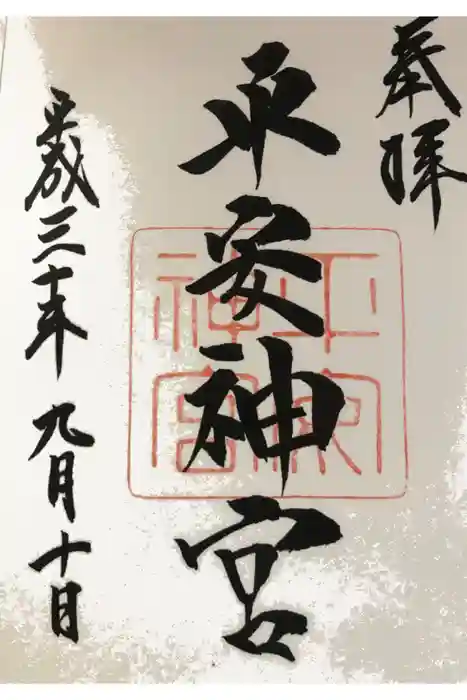 奉拝
平安神宮
平安
神宮
平成三十年九月十日